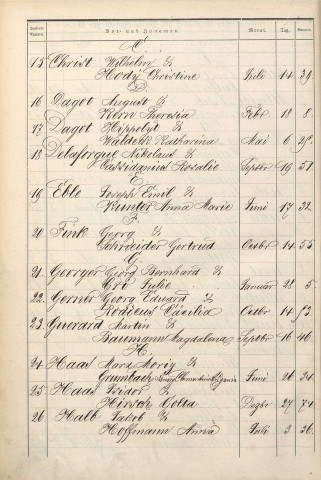 Vor- und Zunamen. Monat. Tag. Nummer.
C.
15 Christ Wilhelm &
Hody Christine Juli 14 39.
D.
16 Dagot August &
Kern Theresia Febr 18 8.
17 Dagot Hippolyt &
Waldeck Katharina Mai 6 25.
18 Delaforgue Nikolaus &
Rosalie Septbr 19 51
E.
19 Eble Joseph Emil &
Kunter Anna Marie Juni 17 32.
F.
20 Fink Georg &
Schneider Gertrud Octbr 14 55
G.
21. Georger Georg Bernhard &
Julie Januar 21 5.
22. Gerner Georg Eduard &
Cäcilia Octbr 14 53.
23. Guerard Martin &
Baumann Magdalena Septbr 16 46.
H.
24 Haas Marx Moriz &
Grumbach Juni 26 34.
25 Haas Isidor &
Hirsch Dezbr 27 74.
26 Halb Jakob &
Hoffmann Anna Juli 3 36.